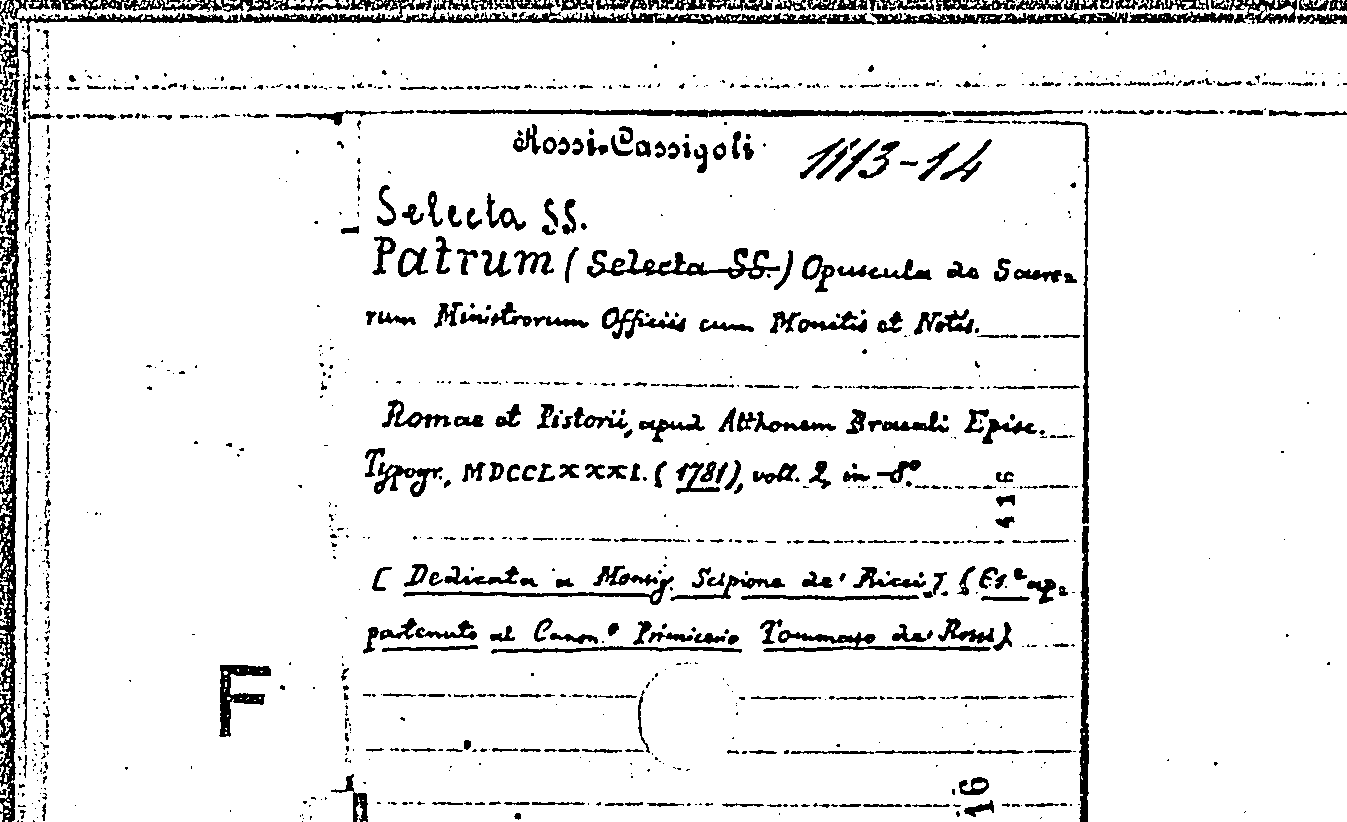 Rossi-Cassigoli 1113-14
Selecta SS.
Patrum (Selecta SS.) Opuscula de Sacro=
rum Ministrorum Officiis cum Monitis et Notis.
Romae et Pistorii, apud Atthonem Bracali Episc.
Typogr., MDCCLXXXI. (1781), voll. 2, in-8º.
[Dedicata a Monsig. Scipione de' Ricci]. (Es.e ap=
partenuto al Canon.º Primicerio Tommaso de' Rossi)
F
16